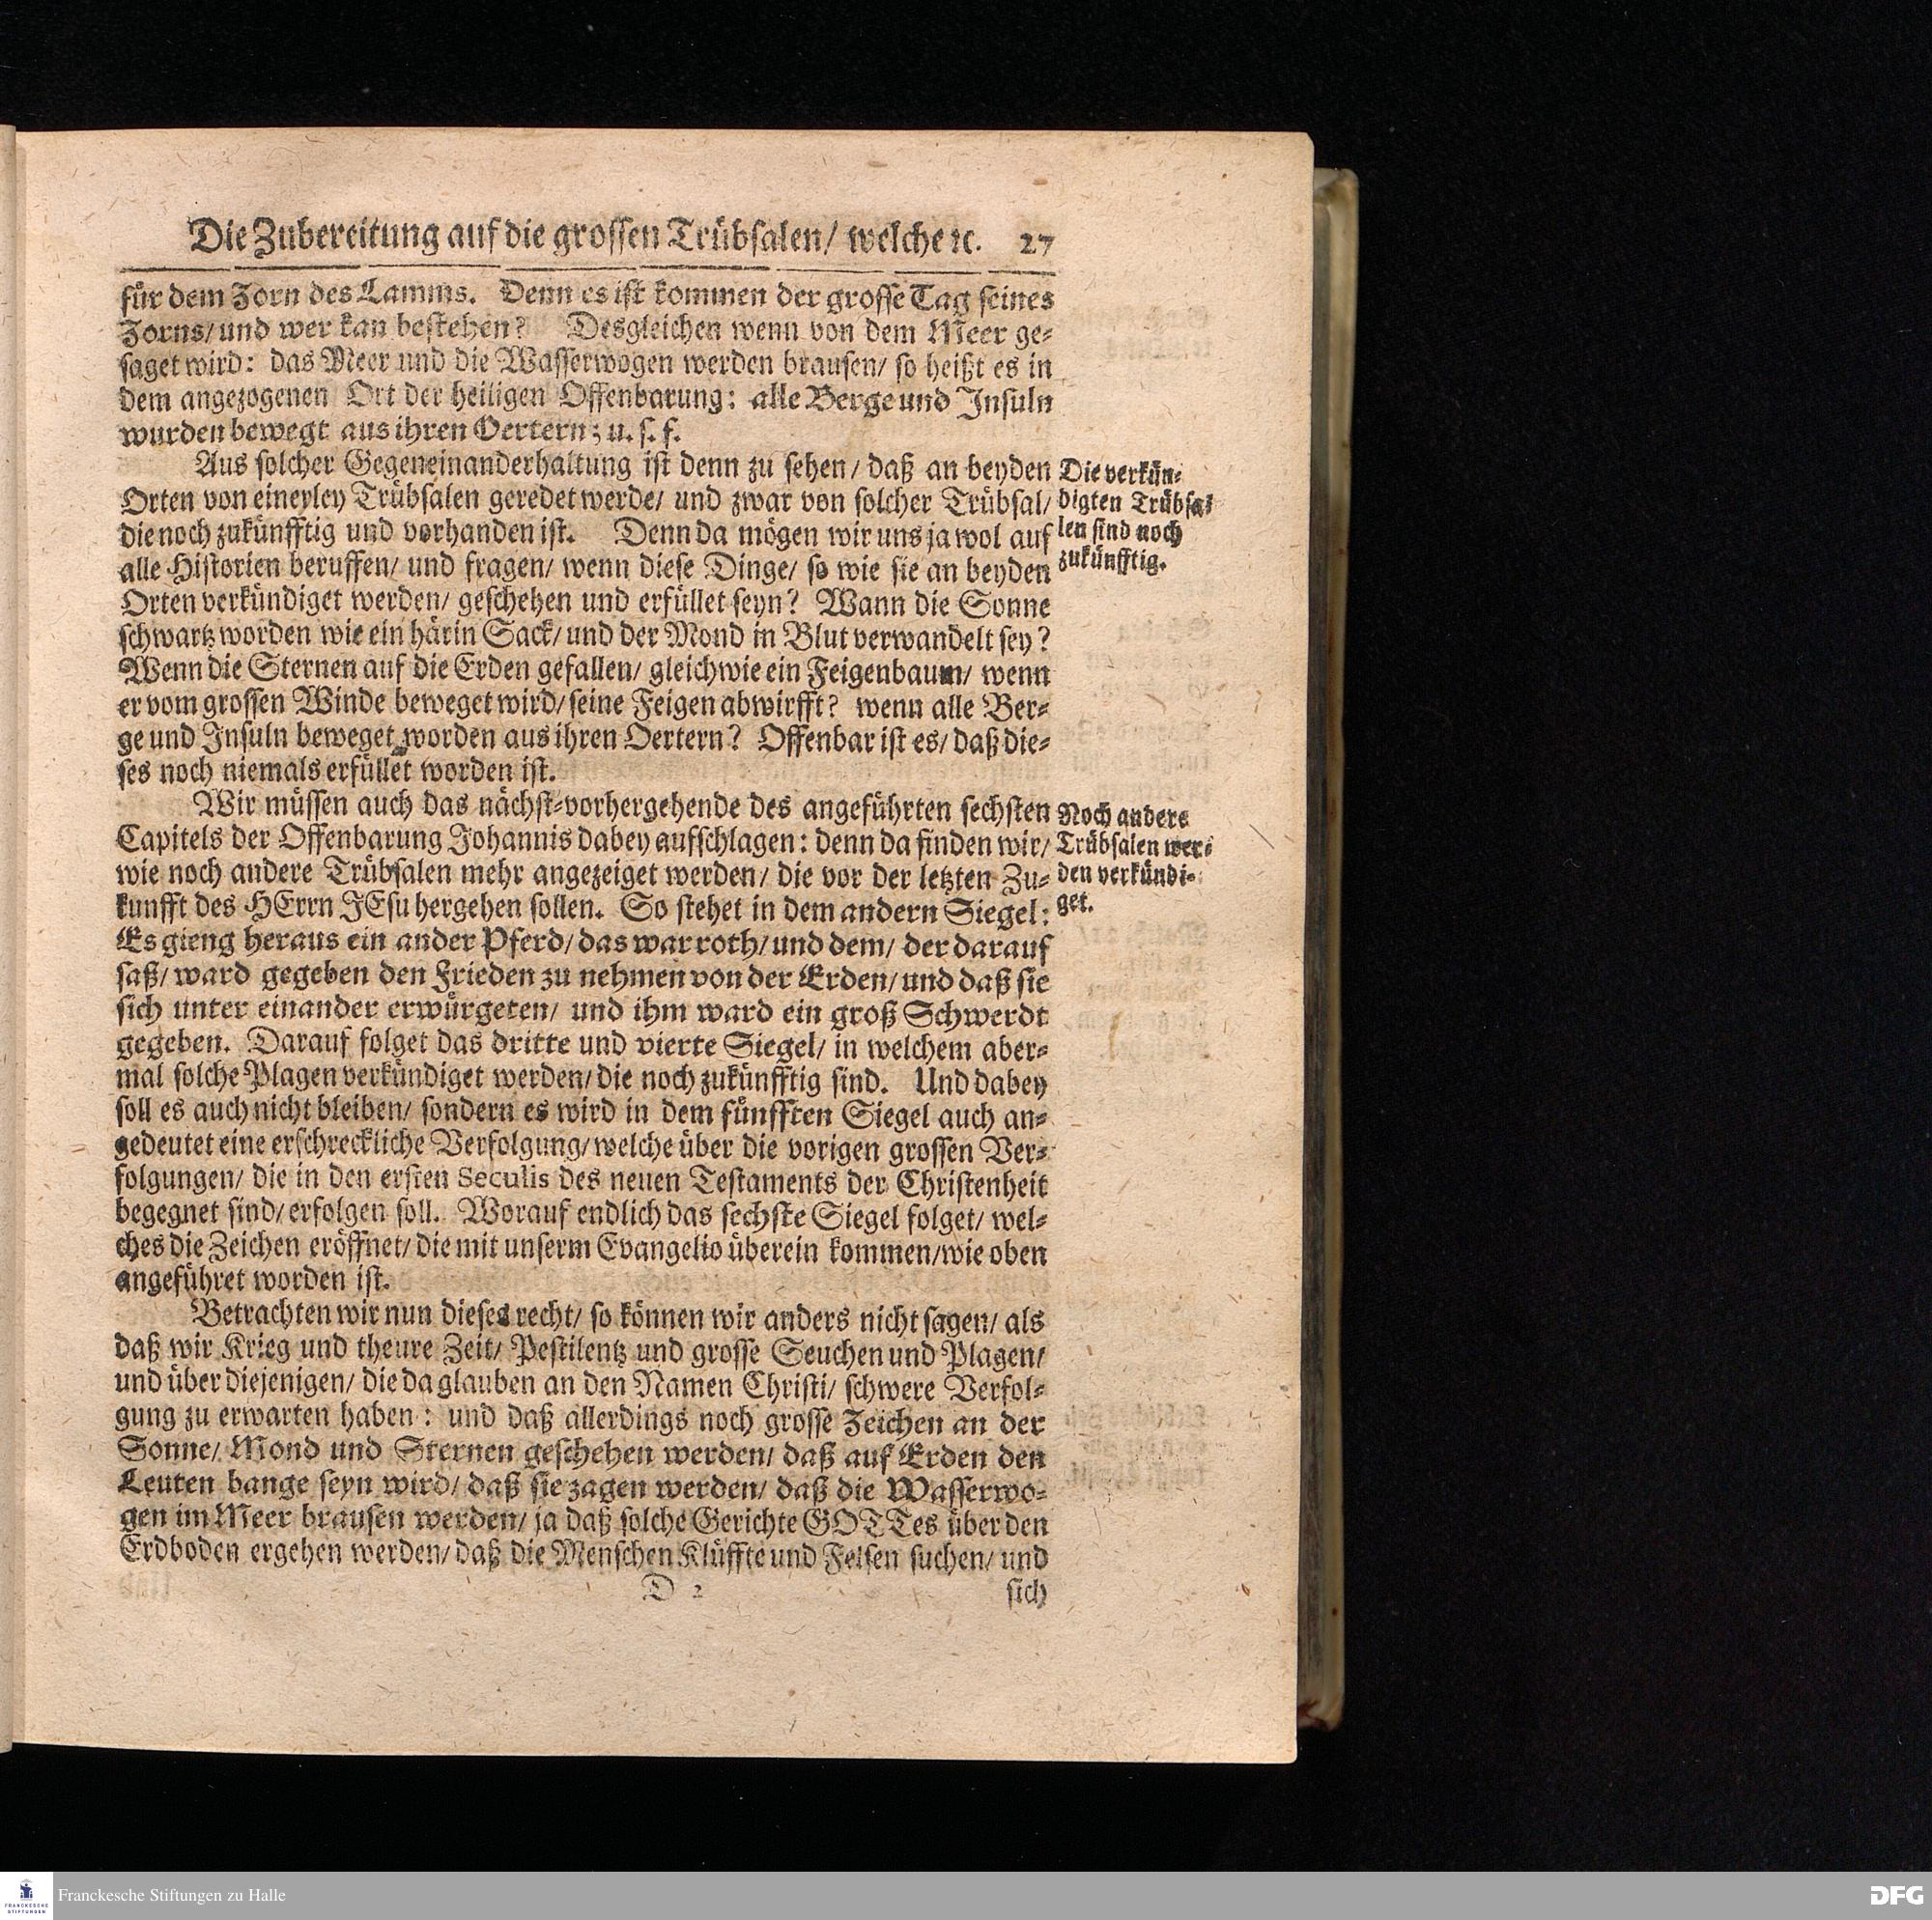 Die Zubereitung auf die grossen Trübsalen/ welche ꝛc. 27
für dem Zorn des Lamms. Denn es ist kommen der grosse Tag seines
Zorns/ und wer kan bestehen? Desgleichen wenn von dem Meer ge-
saget wird: das Meer und die Wasserwogen werden brausen/ so heißt es in
dem angezogenen Ort der heiligen Offenbarung: alle Berge und Insuln
wurden bewegt aus ihren Oertern; u. s. f.
Aus solcher Gegeneinanderhaltung ist denn zu sehen/ daß an beyden
Orten von eineyley Trübsalen geredet werde/ und zwar von solcher Trübsal/
die noch zukünfftig und vorhanden ist. Denn da mögen wir uns ja wol auf
alle Historien beruffen/ und fragen/ wenn diese Dinge/ so wie sie an beyden
Orten verkündiget werden/ geschehen und erfüllet seyn? Wann die Sonne
schwartz worden wie ein härin Sack/ und der Mond in Blut verwandelt sey?
Wenn die Sternen auf die Erden gefallen/ gleichwie ein Feigenbaum/ wenn
er vom grossen Winde beweget wird/ seine Feigen abwirfft? wenn alle Ber-
ge und Insuln beweget worden aus ihren Oertern? Offenbar ist es/ daß die-
ses noch niemals erfüllet worden ist.
Die verkün-
digten Trübsa-
len sind noch
zukünfftig.
Wir müssen auch das nächst-vorhergehende des angeführten sechsten
Capitels der Offenbarung Johannis dabey aufschlagen: denn da finden wir/
wie noch andere Trübsalen mehr angezeiget werden/ die vor der letzten Zu-
kunfft des HErrn JEsu hergehen sollen. So stehet in dem andern Siegel:
Es gieng heraus ein ander Pferd/ das war roth/ und dem/ der darauf
saß/ ward gegeben den Frieden zu nehmen von der Erden/ und daß sie
sich unter einander erwürgeten/ und ihm ward ein groß Schwerdt
gegeben. Darauf folget das dritte und vierte Siegel/ in welchem aber-
mal solche Plagen verkündiget werden/ die noch zukünfftig sind. Und dabey
soll es auch nicht bleiben/ sondern es wird in dem fünfften Siegel auch an-
gedeutet eine erschreckliche Verfolgung/ welche über die vorigen grossen Ver-
folgungen/ die in den ersten Seculis des neuen Testaments der Christenheit
begegnet sind/ erfolgen soll. Worauf endlich das sechste Siegel folget/ wel-
ches die Zeichen eröffnet/ die mit unserm Evangelio überein kommen/ wie oben
angeführet worden ist.
Noch andere
Trübsalen wer-
den verkündi-
get.
Betrachten wir nun dieses recht/ so können wir anders nicht sagen/ als
daß wir Krieg und theure Zeit/ Pestilentz und grosse Seuchen und Plagen/
und über diejenigen/ die da glauben an den Namen Christi/ schwere Verfol-
gung zu erwarten haben: und daß allerdings noch grosse Zeichen an der
Sonne/ Mond und Sternen geschehen werden/ daß auf Erden den
Leuten bange seyn wird/ daß sie zagen werden/ daß die Wasserwo-
gen im Meer brausen werden/ ja daß solche Gerichte GOTTes über den
Erdboden ergehen werden/ daß die Menschen Klüffte und Felsen suchen/ und
D 2 sich
FRANCKESCHE
STIFTUNGEN
Franckesche Stiftungen zu Halle
DFG